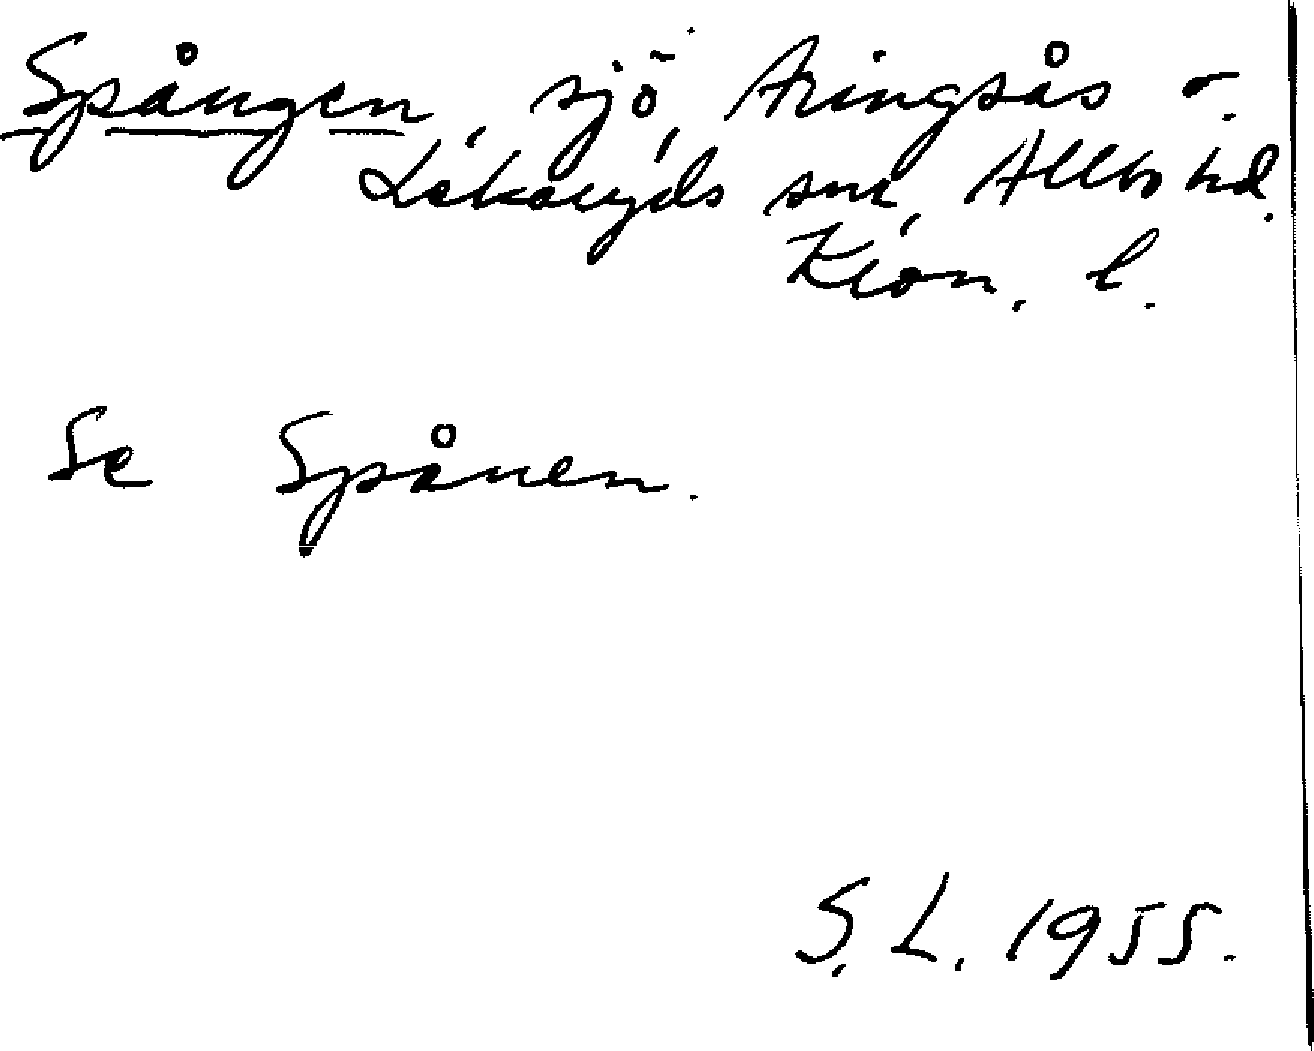 Spången, sjö, Aringsås o.
Lekaryds snr, Allbo hd.
Kron. l.
Se Spånen.
S. L. 1955.